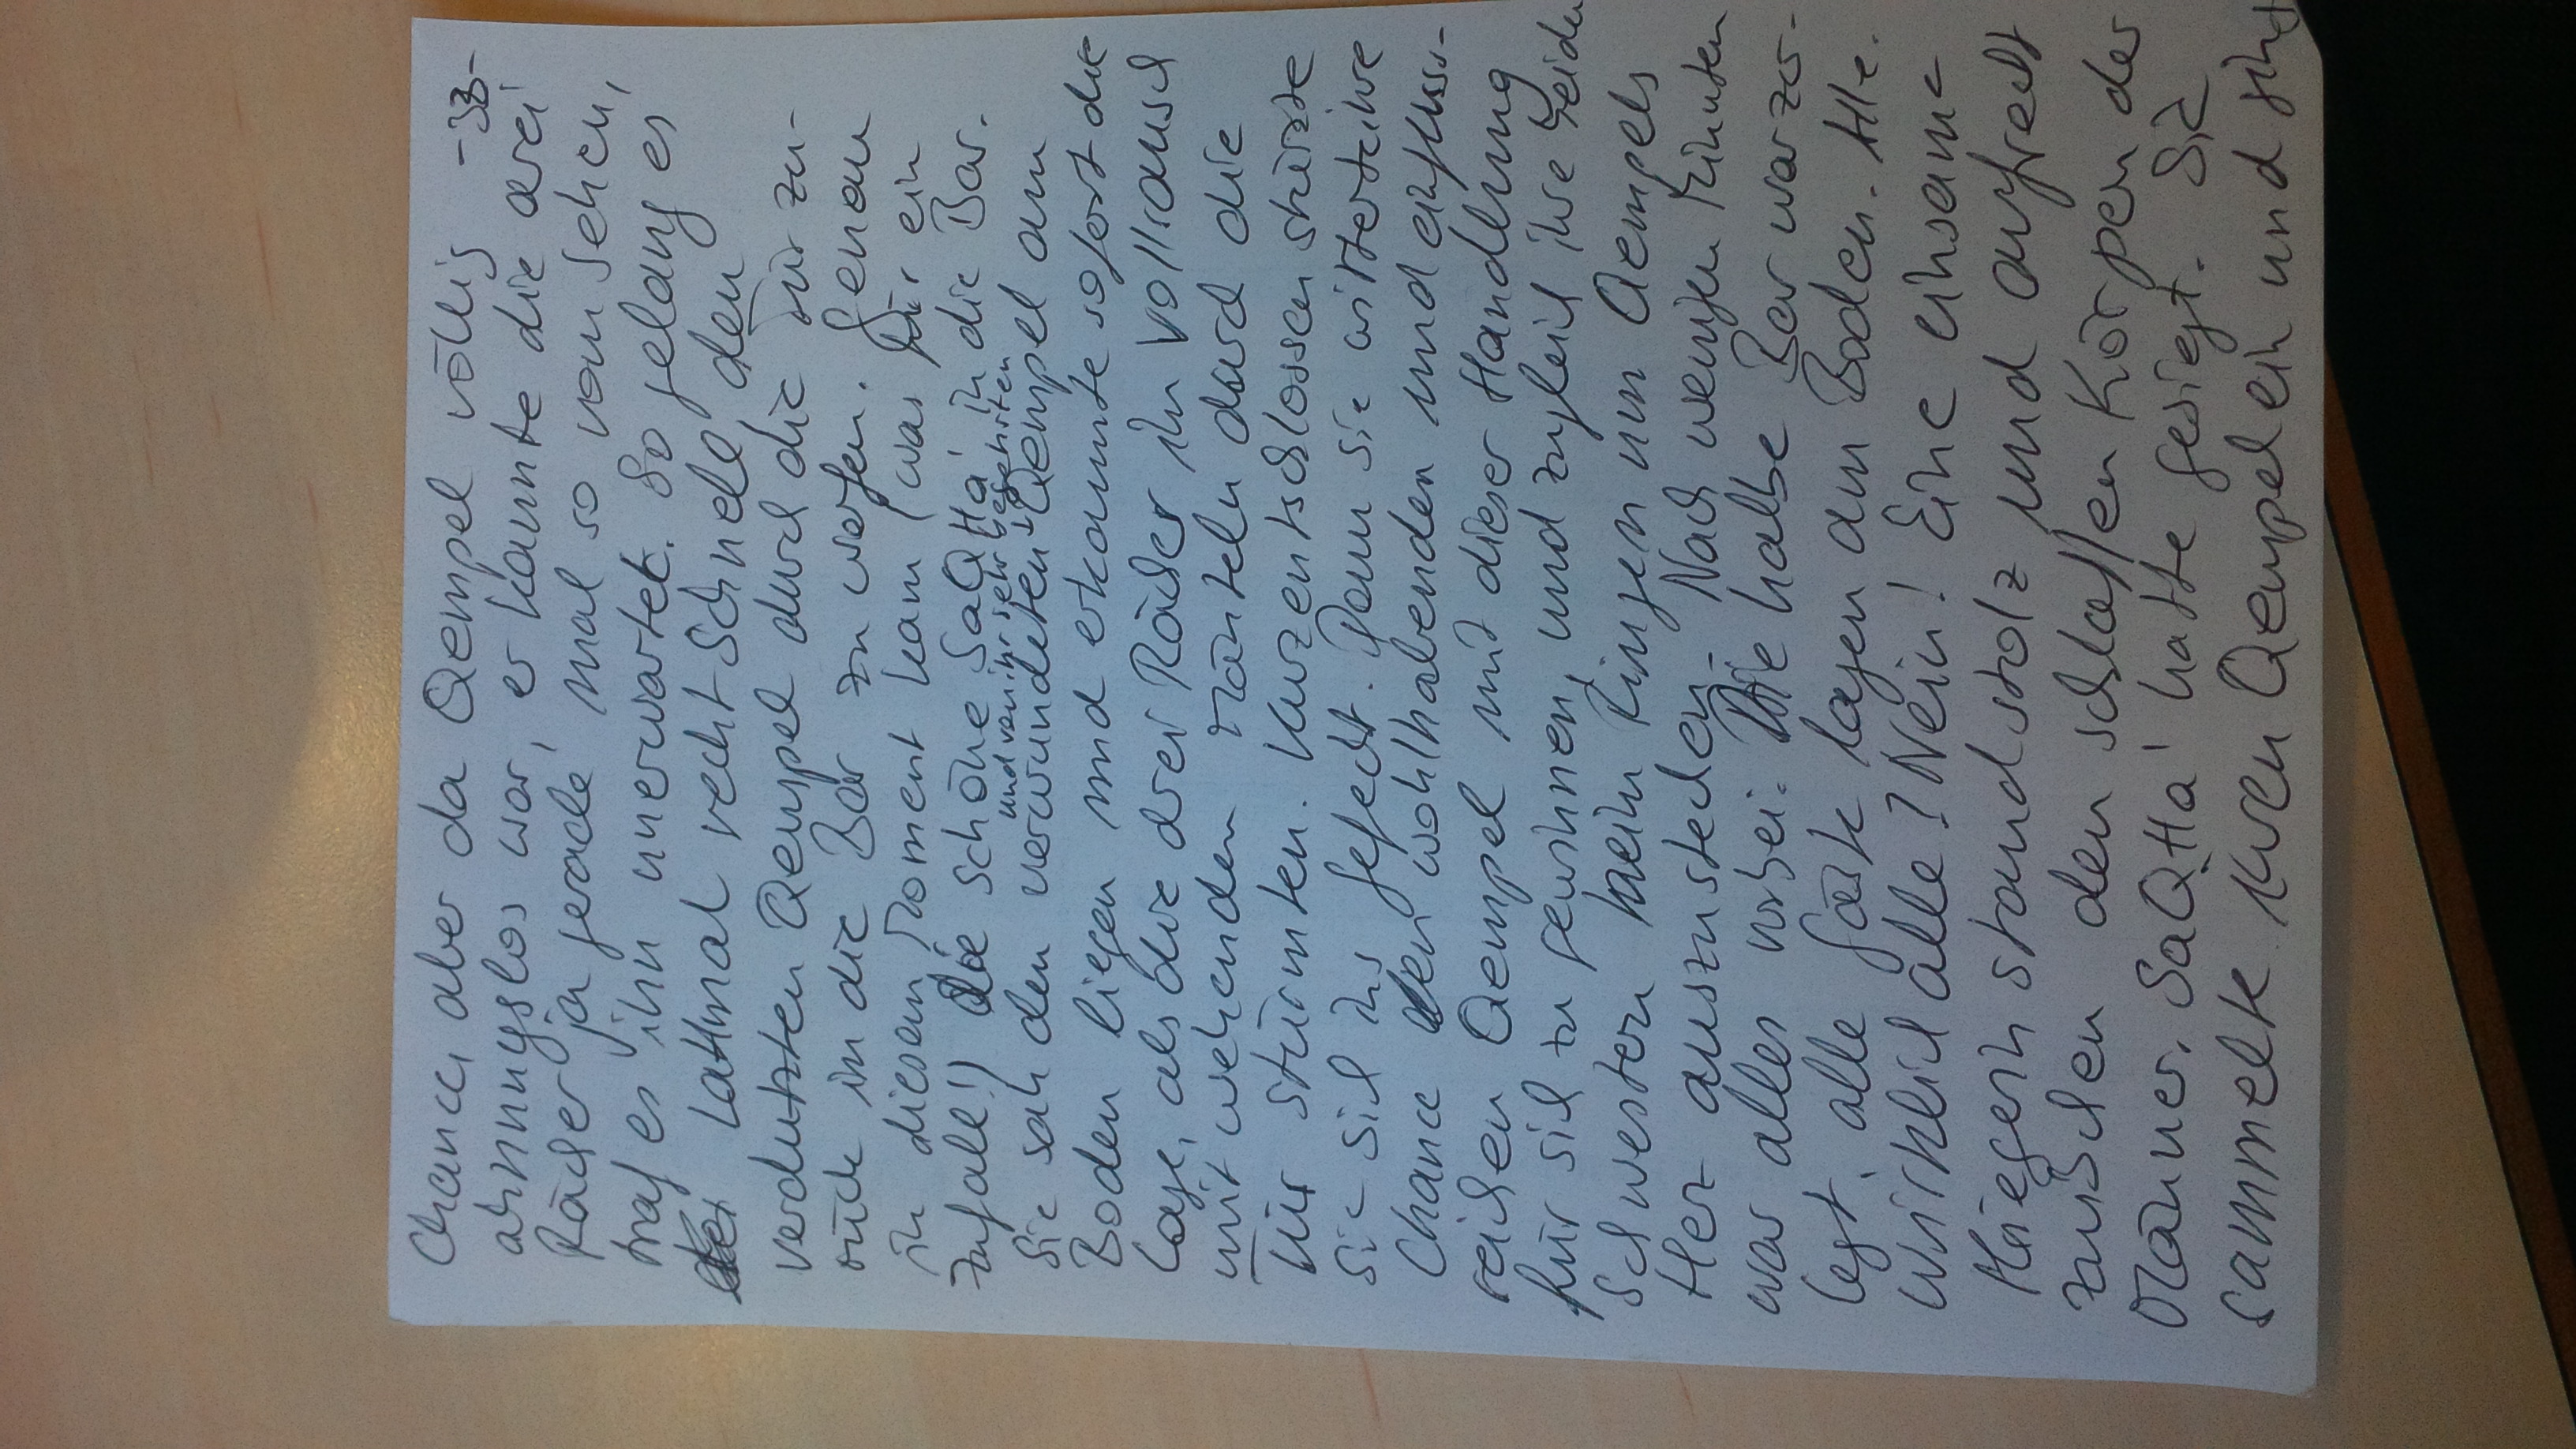 -33-
Chance, aber da Qempel völlig
ahnungslos war, er kannte die drei
Rächer ja gerade mal so vom sehen,
traf es ihn unerwartet. So gelang es
Lattmal recht schnell den
verdutzten Qempel durch die Tür zu-
rück in die Bar zu werfen. Genau
in diesem Moment kam (was für ein
Zufall!) die schöne SaQHa' in die Bar.
und von ihr sehr begehrten
Sie sah den verwundeten Qempel am
Boden liegen und erkannte sofort die
Lage, als die drei Rächer in Vollrausch
mit wehenden Mänteln durch die
Tür stürmten. Kurzentschlossen stürzte
sie sich ins Gefecht. Denn sie witterte ihre
Chance den wohlhabenden und einfluss-
reichen Qempel mit dieser Handlung
für sich zu gewinnen, und zugleich ihre beiden
Schwestern beim Ringen um Qempels
Herz auszustechen. Nach wenigen Minuten
war alles vorbei. Die halbe Bar war zer-
legt, alle Gäste lagen am Boden. Alle.
Wirklich alle? Nein! Eine einsame
Kriegerin stand stolz und aufrecht
zwischen den schlaffen Körpern der
Männer. SaQHa' hatte gesiegt. Sie
sammelte ihren Qempel ein und ging